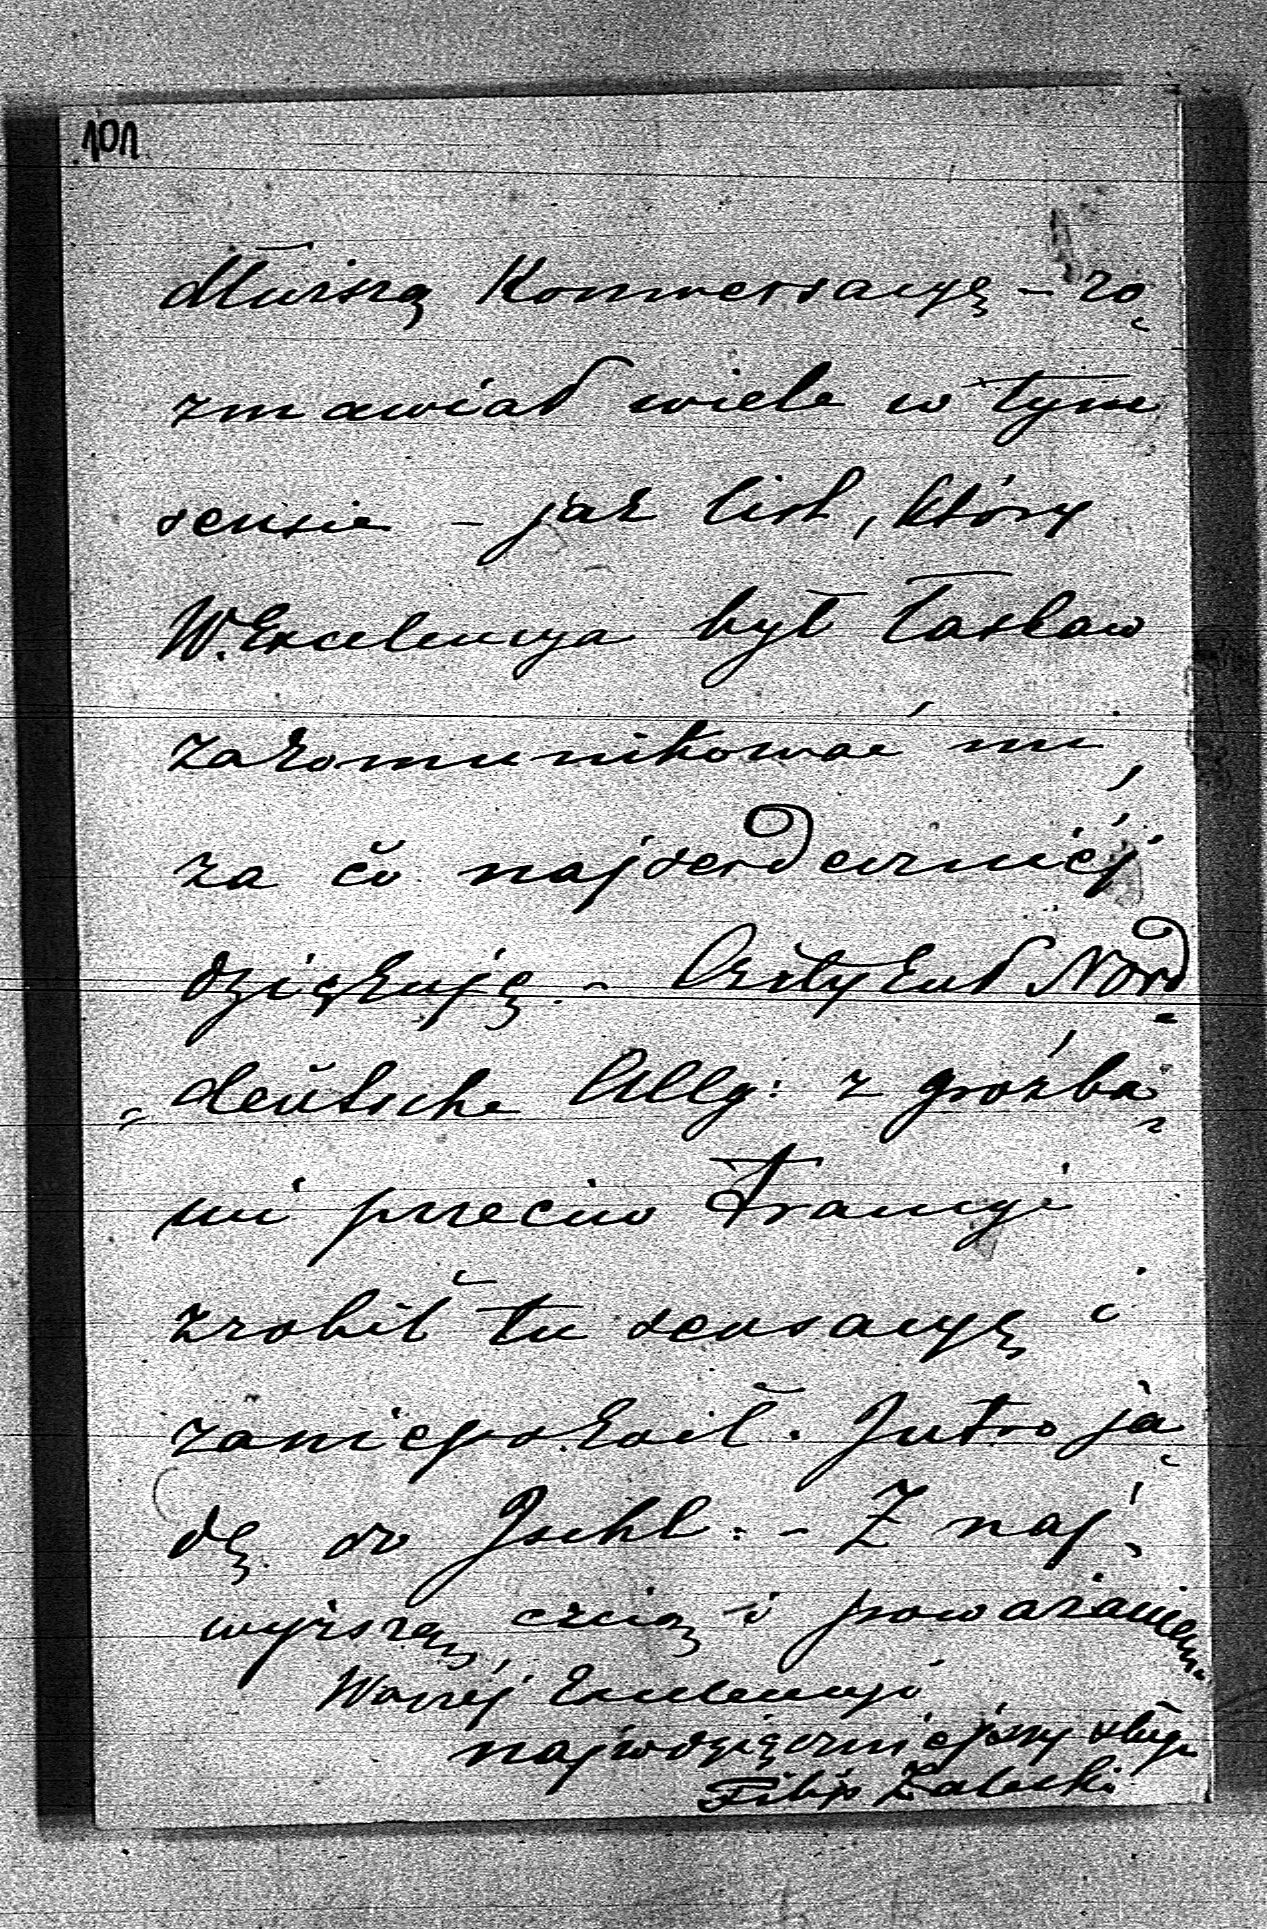 101
dłuższą Konwersacyę – ro-
zmawiał wiele w tym
sensie – jak list, który
W. Excelencya był łaskaw
zakomunikować mi,
za co najserdeczniéj
dziękuję. – Artykuł Nord-
deutsche Allg: z groźba-
mi przeciw Francyi
zrobił tu sensacyę i
zaniepokoił. Jutro ja-
dę do Ischl. – Z naj-
wyższą czcią i poważaniem
Waszéj Excelencyi
najwdzięczniejszy sługa
Filip Zaleski